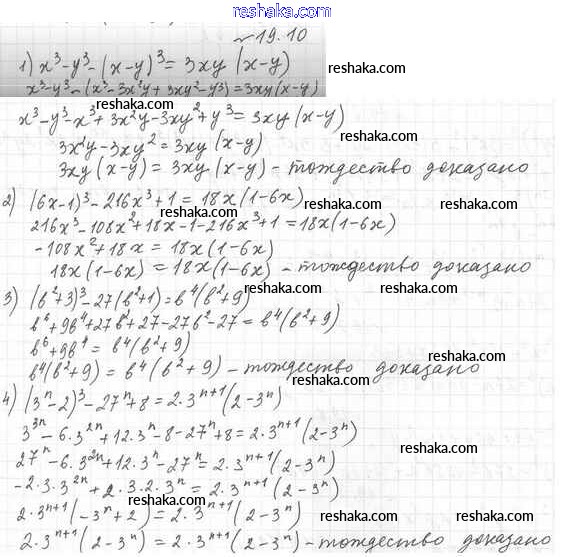 www.reshaka.com
№ 19.10
1) x³-y³-(x-y)³=3xy(x-y) reshaka.com
x³-y³-(x³-3x²y+3xy²-y³)=3xy(x-y)
reshaka.com
x³-y³-x³+3x²y-3xy²+y³=3xy(x-y)
3x²y-3xy²=3xy(x-y) reshaka.com
3xy(x-y)=3xy(x-y)-тождество доказано
2) (6x-1)³-216x³+1=18x(1-6x) reshaka.com reshaka.com
reshaka.com
216x³-108x²+18x-1-216x³+1=18x(1-6x)
-108x²+18x=18x(1-6x) reshaka.com
18x(1-6x)=18x(1-6x)-тождество доказано
reshaka.com
3) (b²+3)³-27(b²+1)=b⁴(b²+9) reshaka.com
b⁶+9b⁴+27b²+27-27b²-27=b⁴(b²+9)
b⁶+9b⁴=b⁴(b²+9)
reshaka.com
b⁴(b²+9)=b⁴(b²+9)-тождество доказано
reshaka.com
4) (3ⁿ-2)³-27ⁿ+8=2·3ⁿ⁺¹(2-3ⁿ)
3³ⁿ-6·3²ⁿ+12·3ⁿ-8-27ⁿ+8=2·3ⁿ⁺¹(2-3ⁿ)
reshaka.com
27ⁿ-6·3²ⁿ+12·3ⁿ-27ⁿ=2·3ⁿ⁺¹(2-3ⁿ)
-2·3·3²ⁿ+2·3·2·3ⁿ=2·3ⁿ⁺¹(2-3ⁿ)
reshaka.com
2·3ⁿ⁺¹(-3ⁿ+2)=2·3ⁿ⁺¹(2-3ⁿ) reshaka.com reshaka.com
2·3ⁿ⁺¹(2-3ⁿ)=2·3ⁿ⁺¹(2-3ⁿ)-тождество доказано
reshaka.com